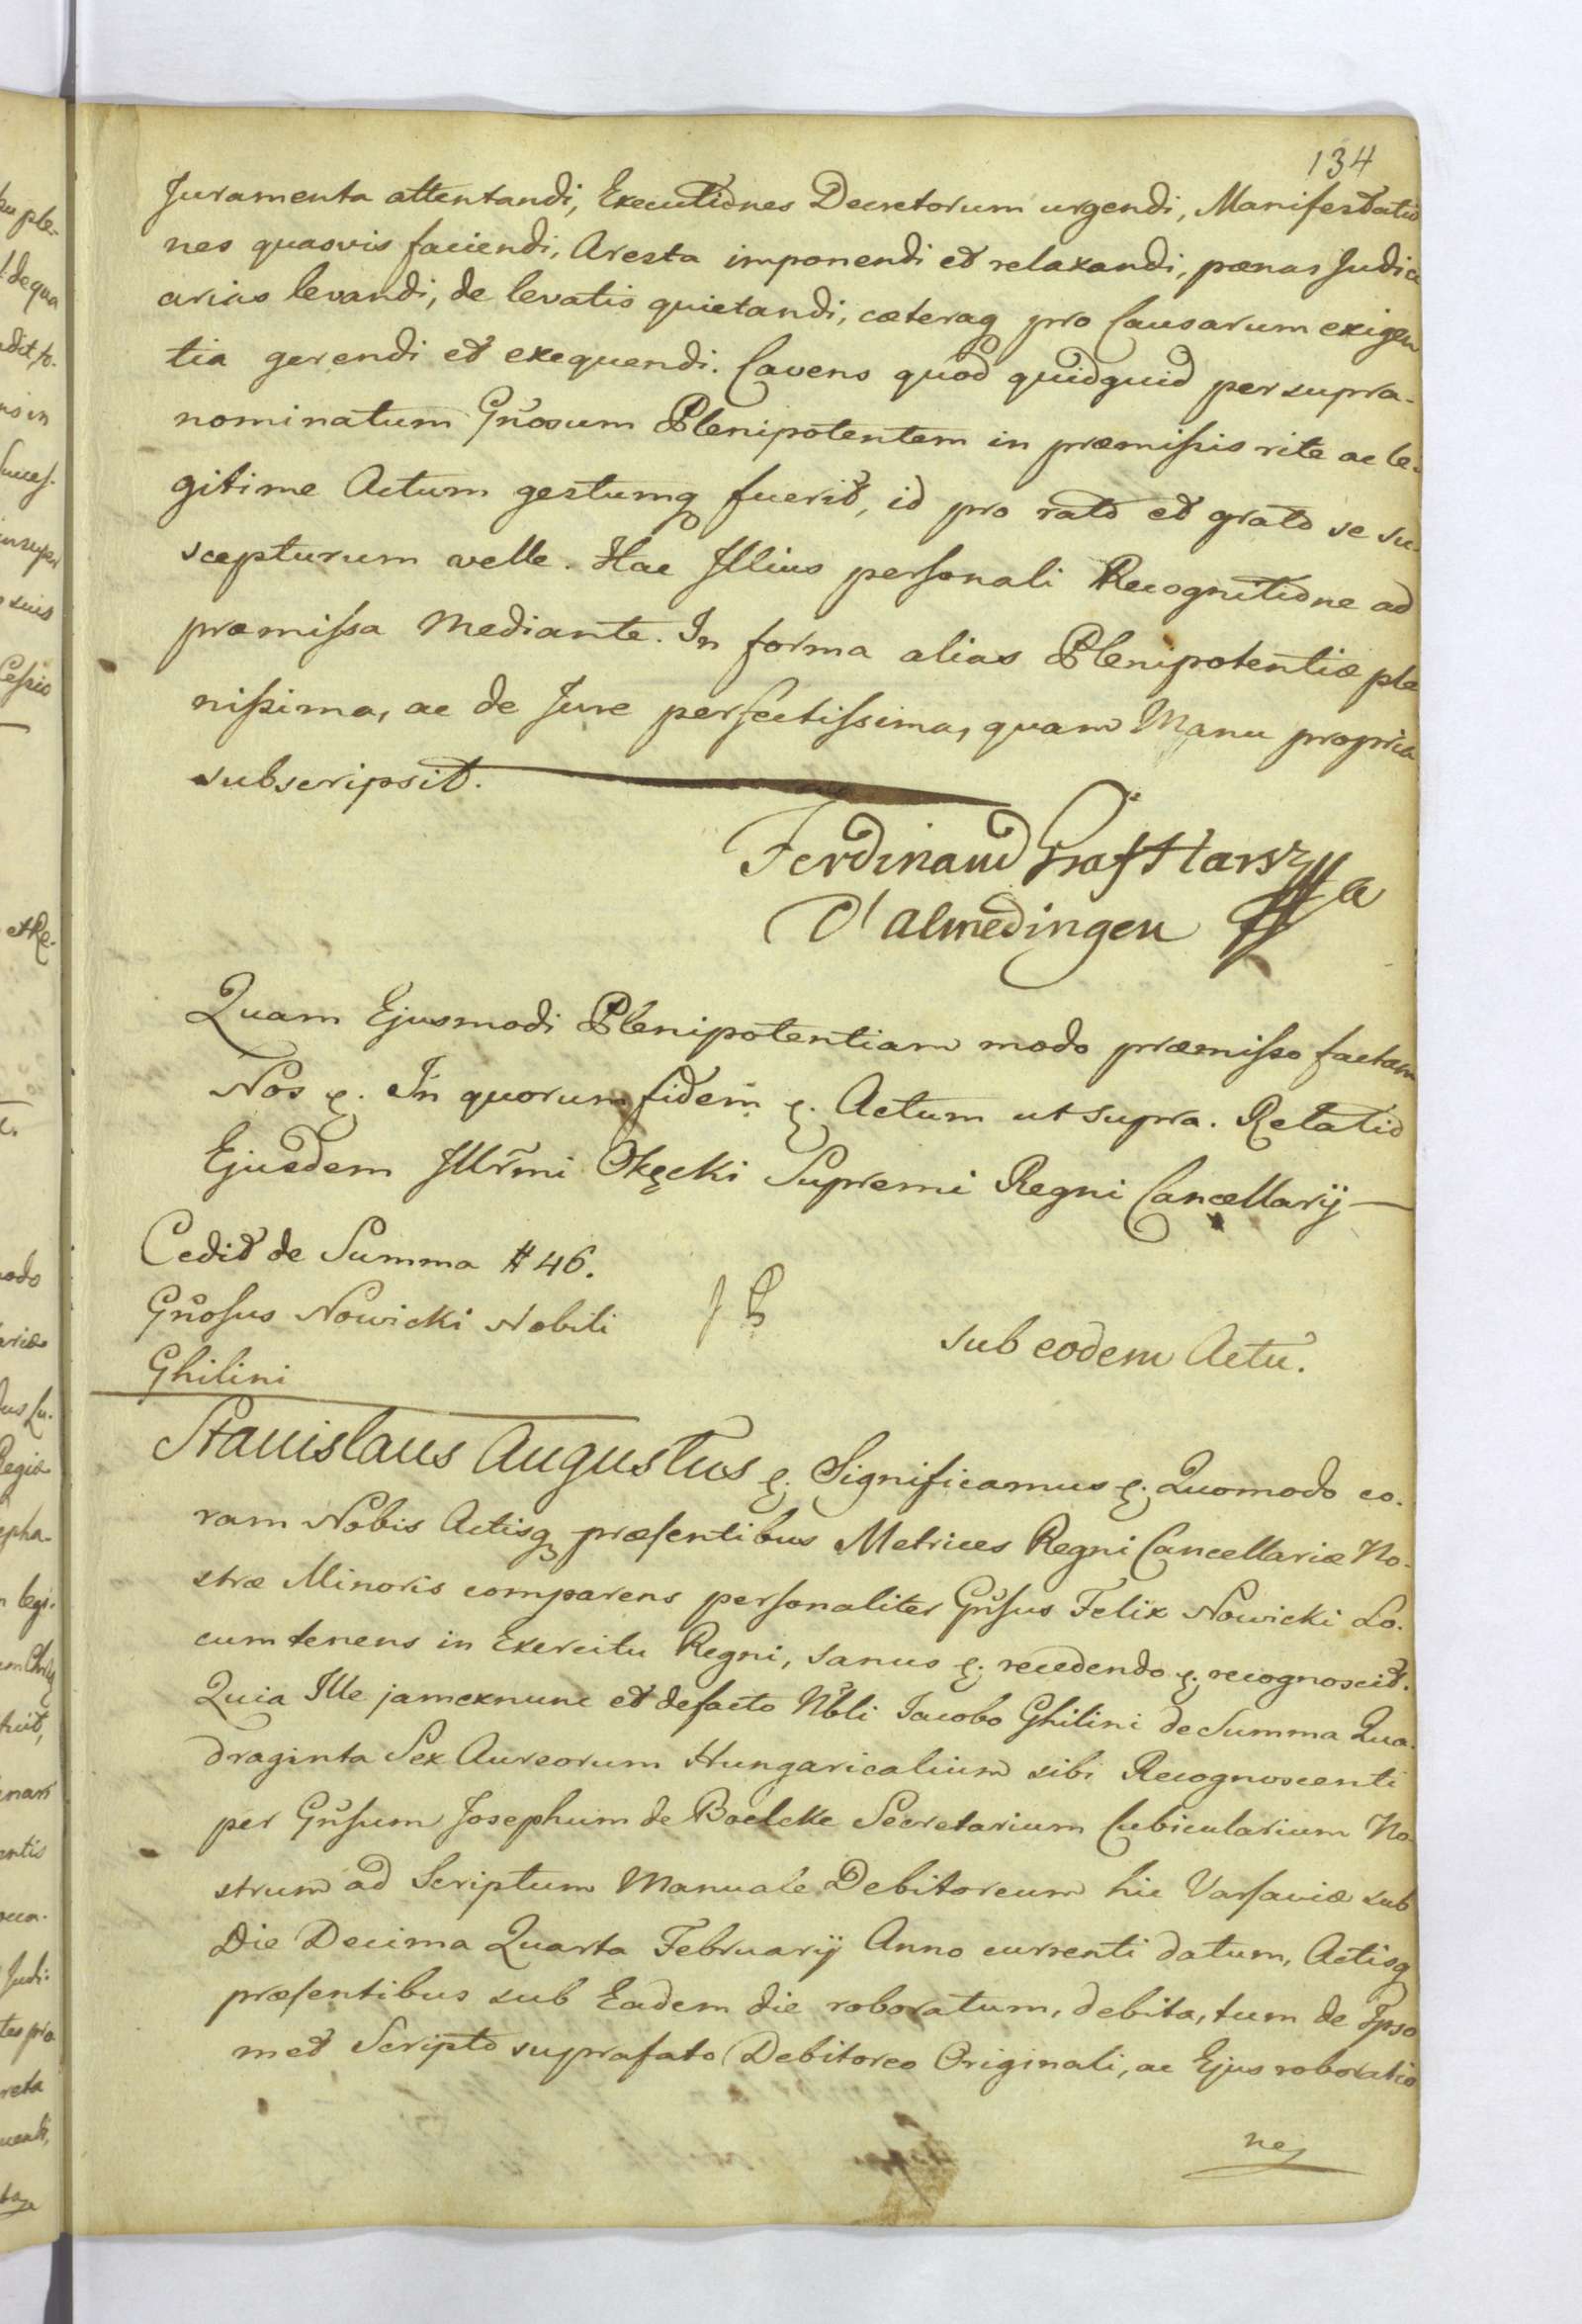 134
Juramenta attentandi, Executiones Decretorum urgendi, Manifestatio
nes quasvis faciendi, Aresta imponendi et relaxandi, pœnas Judici
arias levandi, de levatis quietandi, cæteraq pro Causarum exigen
tia gerendi et exequendi. Cavens quod quidquid per supra-
nominatum Gñosum Plenipotentem in præmissis rite ac le-
gitime Actum gestumq fuerit, id pro rato et grato se su-
scepturum velle. Hac Illius personali Recognitione ad
præmissa mediante. In forma alias Plenipotentiæ ple
nissima, ac de Jure perfectissima, quam Manu propria
subscripsit.
Ferdinand Graf Harsz
D'almedingen
Quam Ejusmodi Plenipotentiam modo præmisso factam
Nos &. In quorum fidem &. Actum ut supra. Relatio
Ejusdem Illr̃mi Okęcki Supremi Regni Cancellarij —
Cedit de Summa # 46.
Gñosus Nowicki Nobili
Ghilini
sub eodem Actu.
Stanislaus Augustus &. Significamus &. Quomodo co-
ram Nobis Actisq præsentibus Metrices Regni Cancellariæ No-
stræ Minoris comparens personaliter Gñsus Felix Nowicki Lo-
cumtenens in Exercitu Regni, sanus &. recedendo &. recognoscit.
Quia Ille jamexnunc et defacto Nb̃li Jacobo Ghilini de Summa Qua-
draginta Sex Aureorum Hungaricalium sibi Recognoscenti
per Gñsum Josephum de Boelcke Secretarium Cubicularium No-
strum ad Scriptum Manuale Debitoreum hic Varsaviæ sub
Die Decima Quarta Februarij Anno currenti datum, Actisq
præsentibus sub Eadem die roboratum, debita, tum de Ipso
met Scripto suprafato Debitoreo Originali, ac Ejus roboratio
ne,